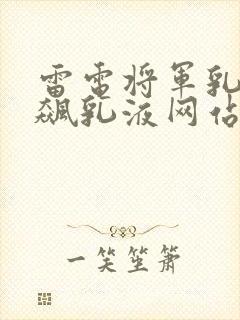 雷電将軍乳
飙乳液网佔
一笑笙箫